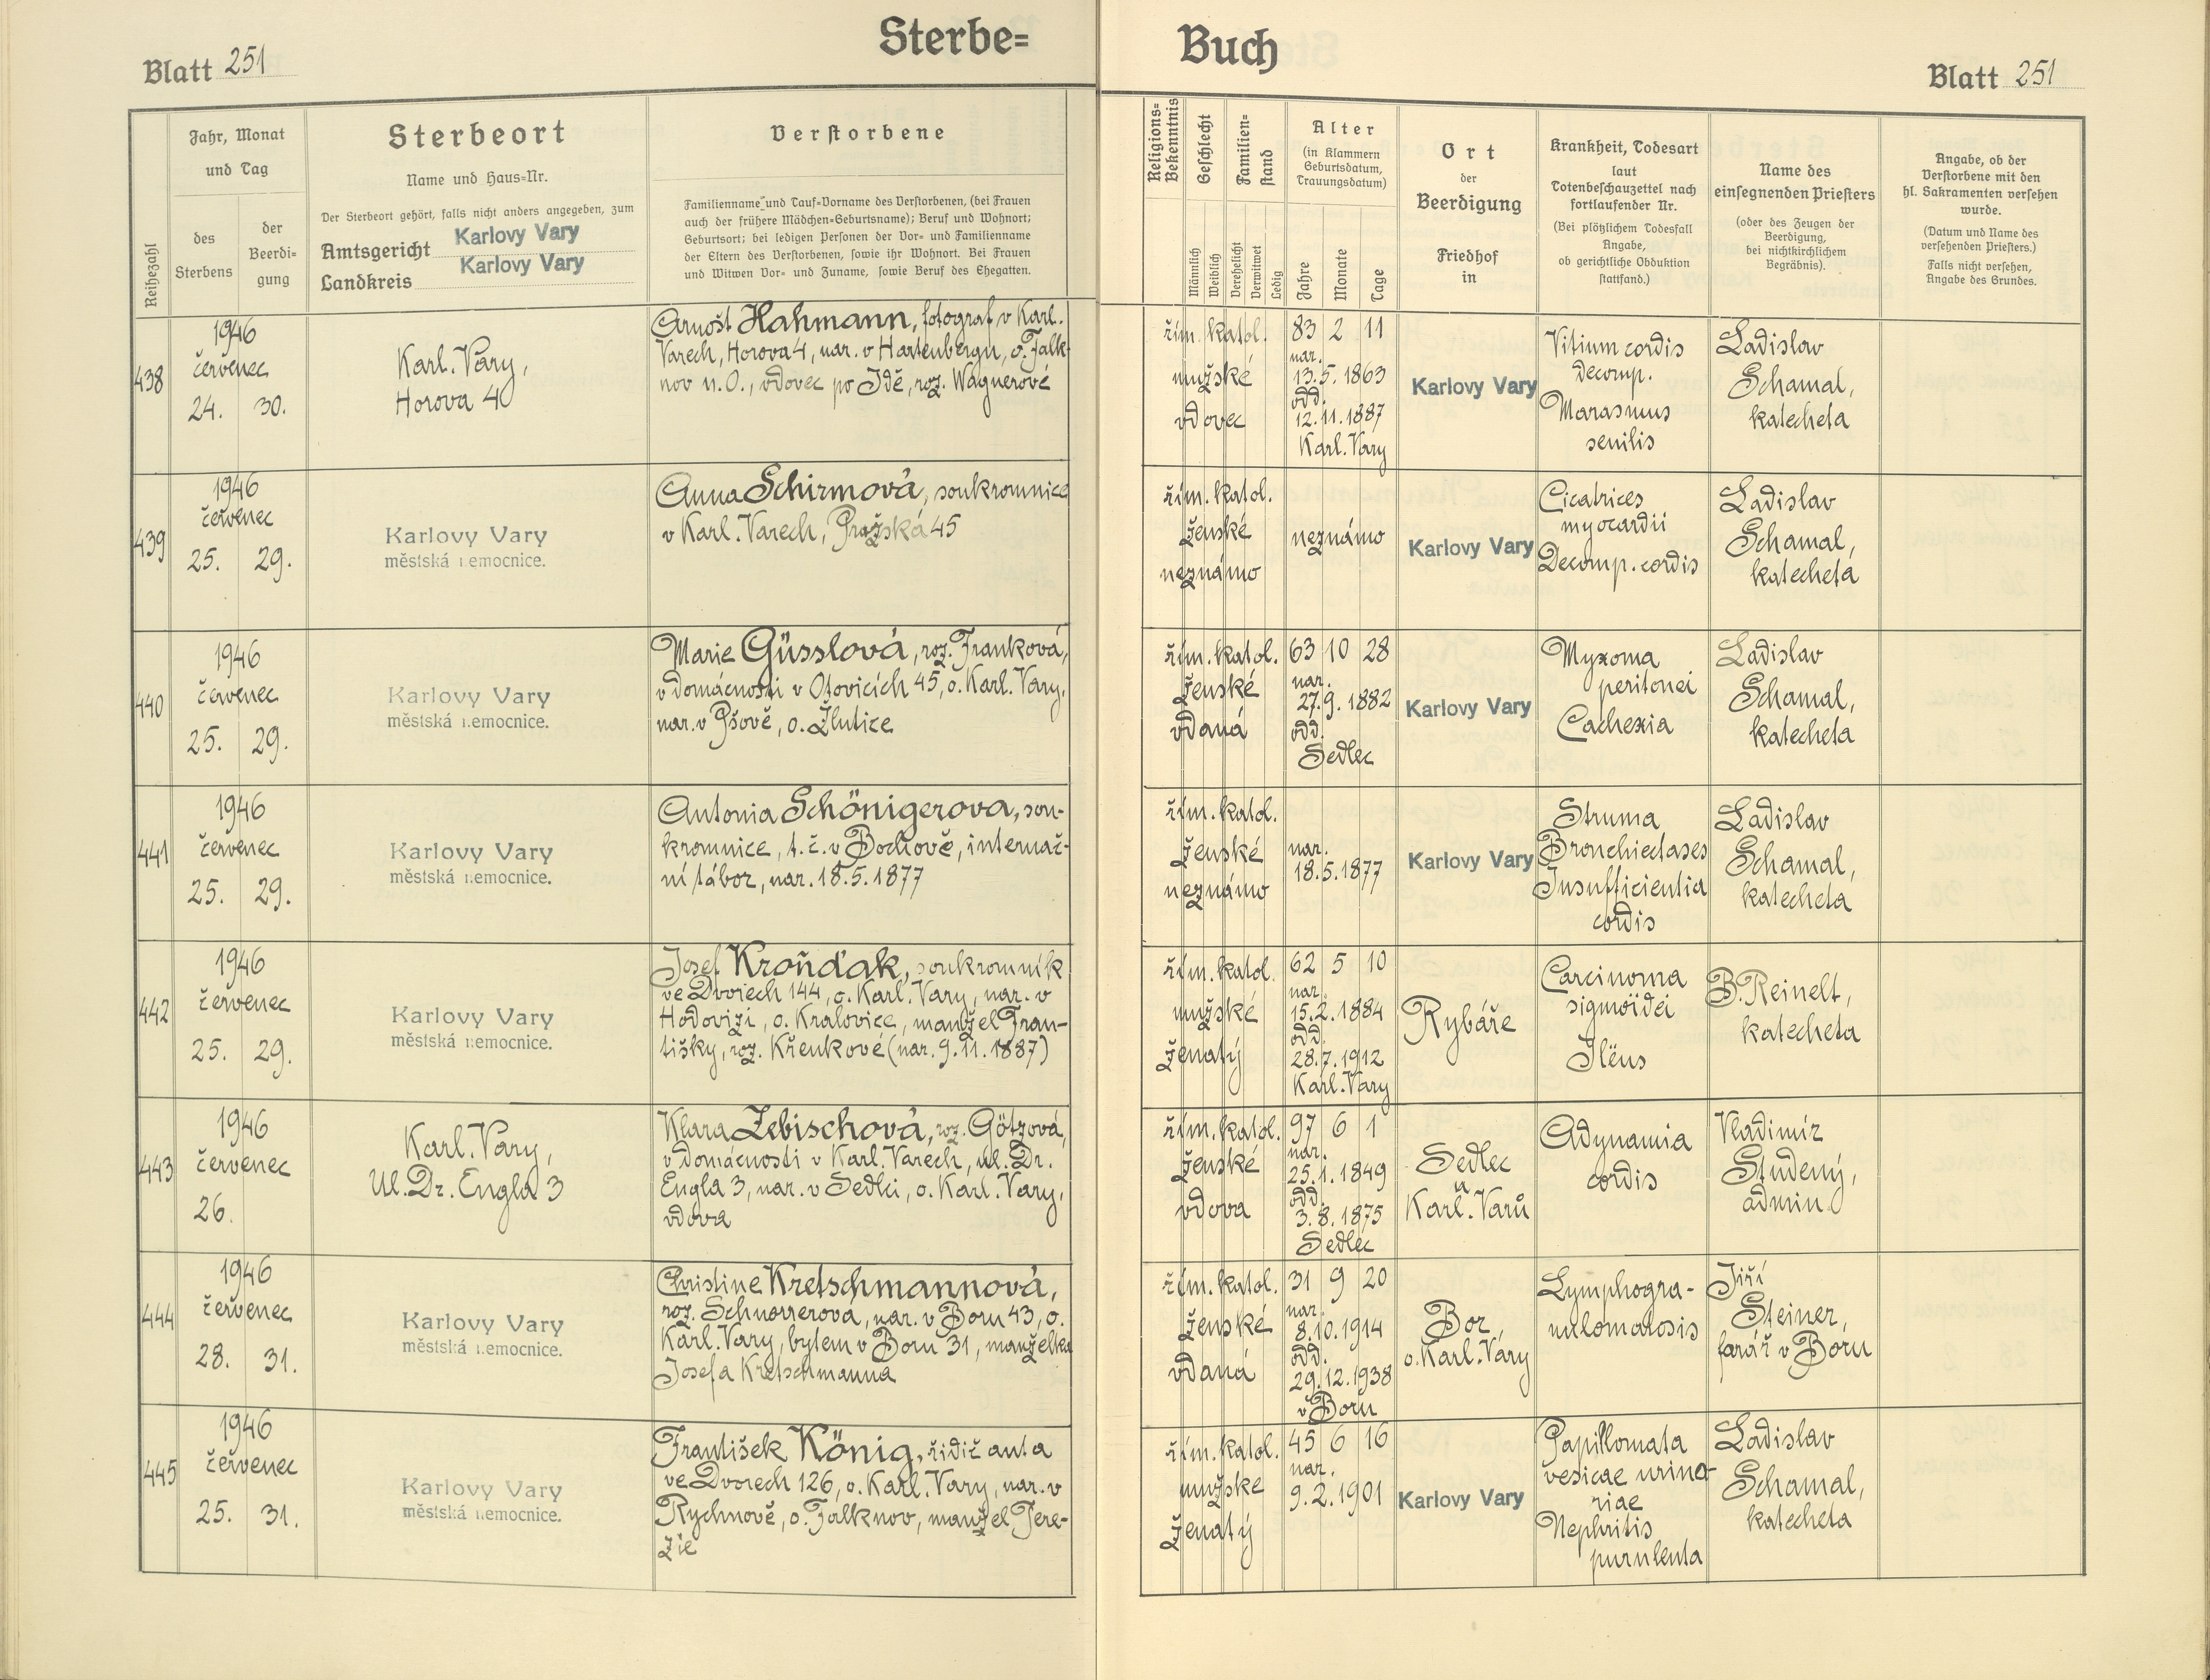 Sterbe=
Blatt 251
Reihezahl
Jahr, Monat
und Tag
des
Sterbens
der
Beerdi=
gung
Sterbeort
Name und Haus=Nr.
Der Sterbeort gehört, falls nicht anders angegeben, zum
Amtsgericht Karlovy Vary
Landkreis Karlovy Vary
Verstorbene
Familienname und Tauf=Vorname des Verstorbenen, (bei Frauen
auch der frühere Mädchen=Geburtsname); Beruf und Wohnort;
Geburtsort; bei ledigen Personen der Vor= und Familienname
der Eltern des Verstorbenen, sowie ihr Wohnort. Bei Frauen
und Witwen Vor= und Zuname, sowie Beruf des Ehegatten.
438
1946
červenec
24. 30.
Karl. Vary,
Horova 4
Arnošt Hahmann, fotograf v Karl.
Varech, Horova 4, nar. v Hartenbergu, o. Falk-
nov n.O., vdovec po Idě, roz. Wagnerové
439
1946
červenec
25. 29.
Karlovy Vary
městská nemocnice.
Anna Schirmová, soukromnice
v Karl. Varech, Pražská 45
440
1946
červenec
25. 29.
Karlovy Vary
městská nemocnice.
Marie Güsslová, roz. Franková,
v domácnosti v Otovicích 45, o. Karl. Vary,
nar. v Pšově, o. Žlutice
441
1946
červenec
25. 29.
Karlovy Vary
městská nemocnice.
Antonia Schönigerova, sou-
kromnice, t.č. v Bochově, internač-
ní tábor, nar. 18.5.1877
442
1946
červenec
25. 29.
Karlovy Vary
městská nemocnice.
Josef Kroňďak, soukromník
ve Dvorech 144, o. Karl. Vary, nar. v
Hodovizi, o. Kralovice, manžel Fran-
tišky, roz. Křenkové (nar. 9.11.1887)
443
1946
červenec
26.
Karl. Vary,
Ul. Dr. Engla 3
Klara Zebischová, roz. Götzová,
v domácnosti v Karl. Varech, ul. Dr.
Engla 3, nar. v Sedlci, o. Karl. Vary,
vdova
444
1946
červenec
28. 31.
Karlovy Vary
městská nemocnice.
Christine Kretschmannová,
roz. Schnorrerová, nar. v Boru 43, o.
Karl. Vary, bytem v Boru 31, manželka
Josefa Kretschmanna
445
1946
červenec
25. 31.
Karlovy Vary
městská nemocnice.
František König, řidič auta
ve Dvorech 126, o. Karl. Vary, nar. v
Rychnově, o. Falknov, manžel Tere-
zie
Buch
Blatt 251
Religions=
Bekenntnis
Geschlecht
Männlich
Weiblich
Familien=
stand
Verehelicht
Verwitwet
Ledig
Alter
(in Klammern
Geburtsdatum,
Trauungsdatum)
Jahre
Monate
Tage
Ort
der
Beerdigung
Friedhof
in
Krankheit, Todesart
laut
Totenbeschauzettel nach
fortlaufender Nr.
(Bei plötzlichem Todesfall
Angabe,
ob gerichtliche Obduktion
stattfand.)
Name des
einsegnenden Priesters
(oder des Zeugen der
Beerdigung,
bei nichtkirchlichem
Begräbnis).
Angabe, ob der
Verstorbene mit den
hl. Sakramenten versehen
wurde.
(Datum und Name des
versehenden Priesters.)
Falls nicht versehen,
Angabe des Grundes.
řím. katol.
mužské
vdovec
83 2 11
nar.
13.5.1863
odd.
12.11.1887
Karl. Vary
Karlovy Vary
Vitium cordis
decomp.
Marasmus
senilis
Ladislav
Schamal,
katecheta
řím. katol.
ženské
neznámo
neznámo
Karlovy Vary
Cicatrices
myocardii
Decomp. cordis
Ladislav
Schamal,
katecheta
řím. katol.
ženské
vdaná
63 10 28
nar.
27.9.1882
odd.
Sedlec
Karlovy Vary
Myxoma
peritonei
Cachexia
Ladislav
Schamal,
katecheta
řím. katol.
ženské
neznámo
nar.
18.5.1877
Karlovy Vary
Struma
Bronchiectases
Insufficientia
cordis
Ladislav
Schamal,
katecheta
řím. katol.
mužské
ženatý
62 5 10
nar.
15.2.1884
odd.
28.7.1912
Karl. Vary
Rybáře
Carcinoma
sigmoïdei
Ilëus
B. Reinelt,
katecheta
řím. katol.
ženské
vdova
97 6 1
nar.
25.1.1849
odd.
3.8.1875
Sedlec
Sedlec
u
Karl. Varů
Adynamia
cordis
Vladimír
Studený,
admin.
řím. katol.
ženské
vdaná
31 9 20
nar.
8.10.1914
odd.
29.12.1938
v Boru
Bor,
o. Karl. Vary
Lymphogra-
nulomatosis
Jiří
Steiner,
farář v Boru
řím. katol.
mužske
ženatý
45 6 16
nar.
9.2.1901
Karlovy Vary
Papillomata
vesicae urina-
riae
Nephritis
purulenta
Ladislav
Schamal,
katecheta